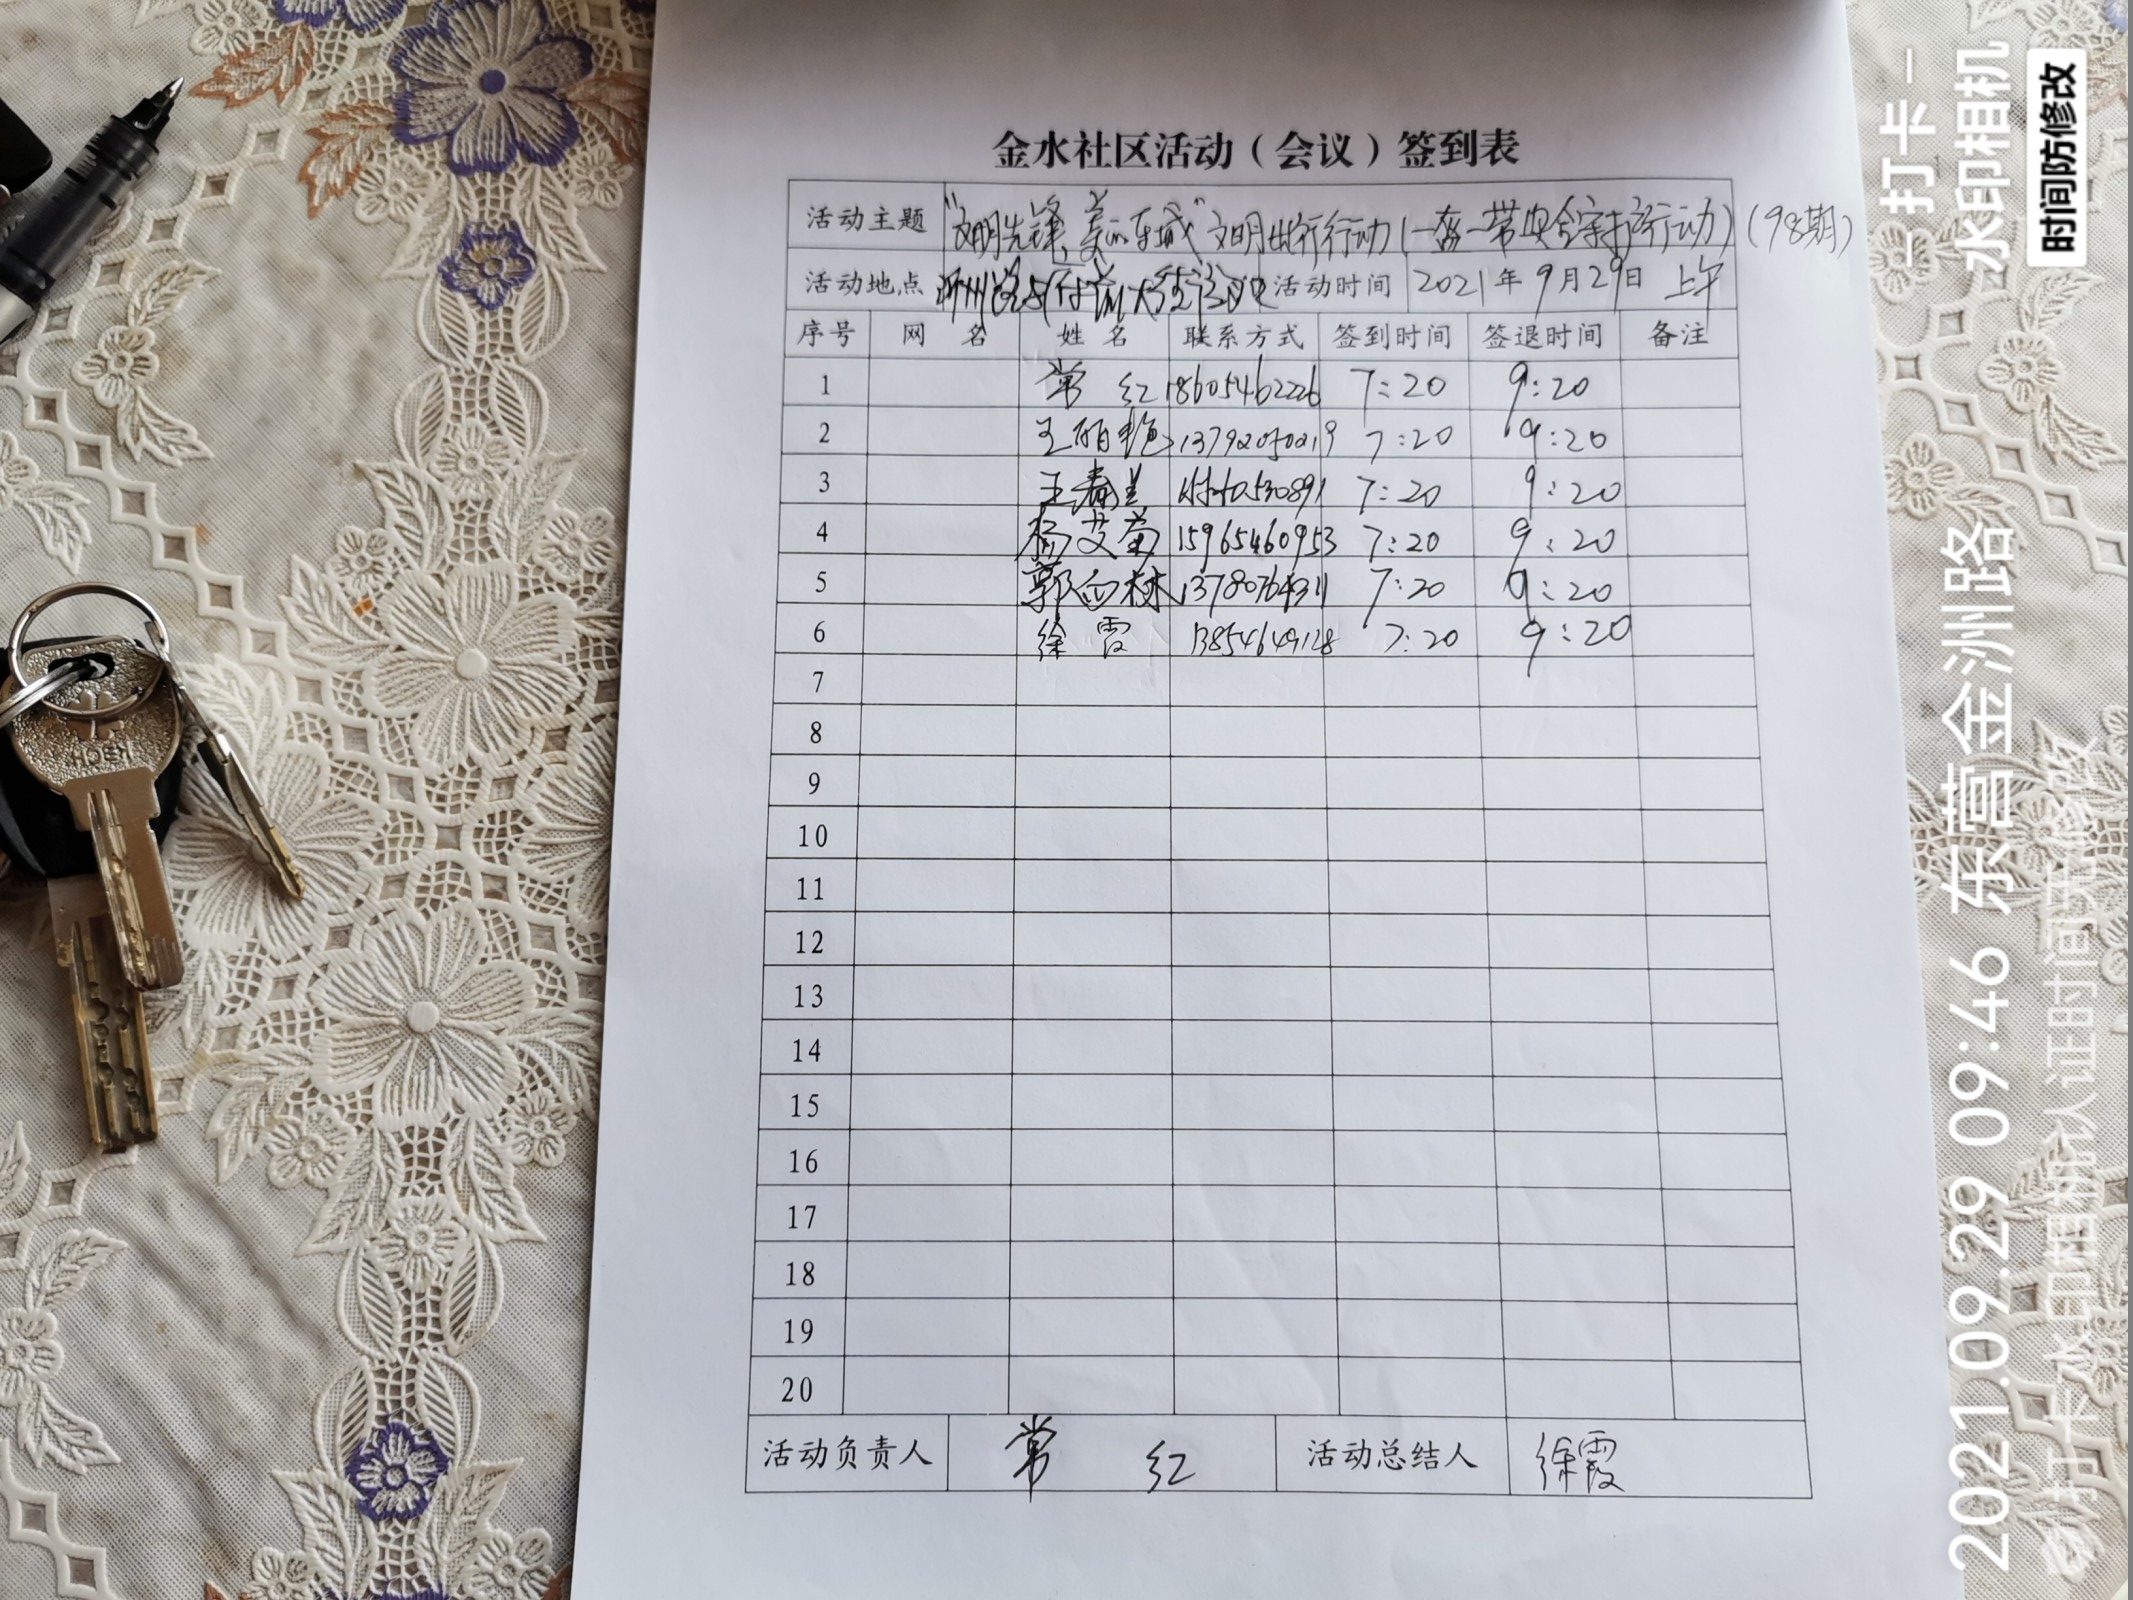 金水社区活动（会议）签到表
活动主题 "文明先锋、美丽东城"文明出行行动(一盔一带安全守护行动)(98期)
活动地点 活动时间 2021年9月29日 上午
序号 网 名 姓 名 联系方式 签到时间 签退时间 备注
1 常 红 18605462226 7:20 9:20
2 王 艳 13792050219 7:20 9:20
3 王春兰 7:20 9:20
4 杨艾菊 15965460953 7:20 9:20
5 郭向林 13780764311 7:20 9:20
6 徐 霞 13854649128 7:20 9:20
7
8
9
10
11
12
13
14
15
16
17
18
19
20
活动负责人 常 红 活动总结人 徐霞
KBCH
-打卡-
水印相机
时间防修改
2021.09.29 09:46 东营金洲路
@打卡水印相机认证时间无修改